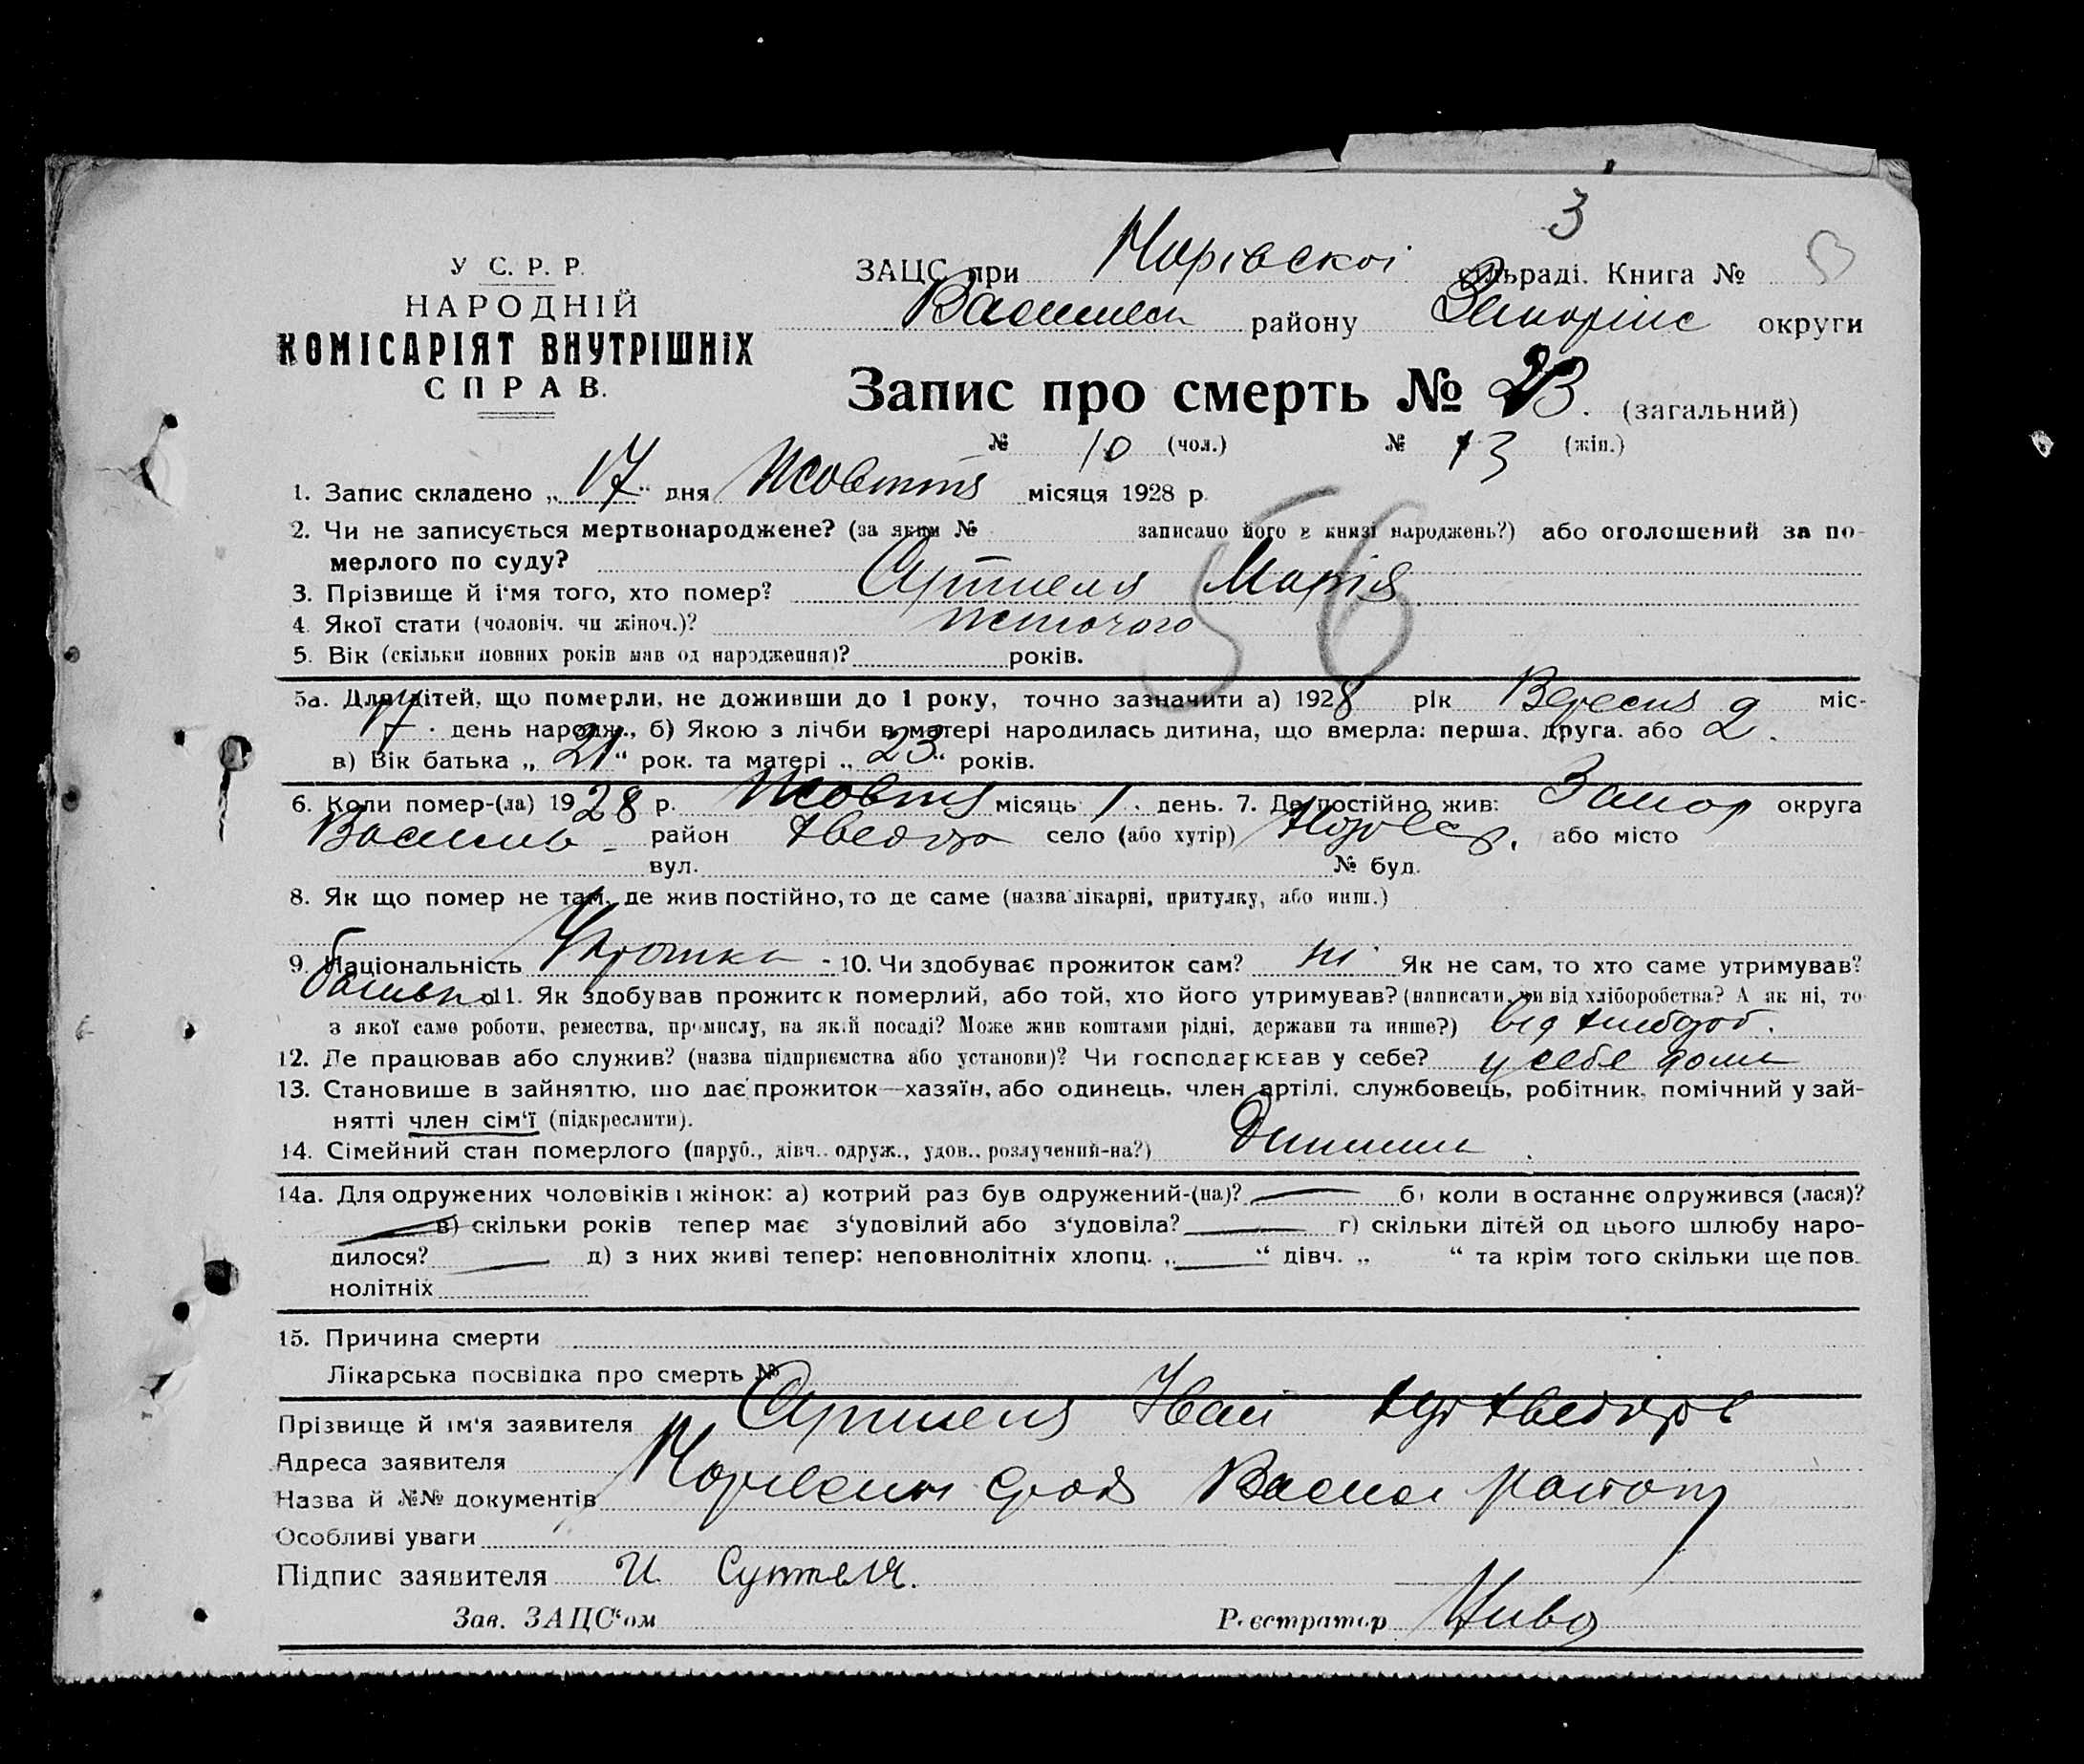 3
У С. Р. Р.
НАРОДНІЙ
КОМІСАРІЯТ ВНУТРІШНІХ
СПРАВ.
ЗАЦС при сільраді. Книга №
району округи
Запис про смерть № 23. (загальний)
№ 10 (чол.) № 13 (жін.)
1. Запис складено „ 17 “ дня Жовтня місяця 1928 р.
56
2. Чи не записується мертвонароджене? (за яким № записано його в книзі народжень?) або оголошений за по-
мерлого по суду?
3. Прізвище й ім'я того, хто помер? Сутшеля Марія
4. Якої стати (чоловіч. чи жіноч.)? жіночого
5. Вік (скільки повних років мав од народження)? років.
5а. Для дітей, що померли, не доживши до 1 року, точно зазначити а) 1928 рік Вересня 9 міс-
17 день народж., б) Якою з лічби в матері народилась дитина, що вмерла: перша, друга, або 2.
в) Вік батька „ 21 “ рок. та матері „ 23 “ років.
6. Коли помер-(ла) 1928 р. Жовтня місяць 1. день. 7. Де постійно жив: Запор округа
район село (або хутір) або місто
вул. № буд.
8. Як що помер не там, де жив постійно, то де саме (назва лікарні, притулку, або инш.)
9. Національність 10. Чи здобуває прожиток сам? ні Як не сам, то хто саме утримував?
батько 11. Як здобував прожиток померлий, або той, хто його утримував? (написати, чи від хліборобства? А як ні, то
з якої само роботи, ремества, промислу, на якій посаді? Може жив коштами рідні, держави та инше?) від хлібороб.
12. Де працював або служив? (назва підприємства або установи)? Чи господарював у себе? у себе дома
13. Становище в зайняттю, що дає прожиток—хазяїн, або одинець, член артілі, службовець, робітник, помічний у зай-
нятті член сім'ї (підкреслити).
14. Сімейний стан померлого (паруб., дівч., одруж., удов., розлучений-на?) Дитина
14а. Для одружених чоловіків і жінок: а) котрий раз був одружений-(на)? б) коли в останнє одружився (лася)?
в) скільки років тепер має з'удовілий або з'удовіла? г) скільки дітей од цього шлюбу наро-
дилося? д) з них живі тепер: неповнолітніх хлопц. „ “ дівч. „ “ та крім того скільки ще пов-
нолітніх
15. Причина смерти
Лікарська посвідка про смерть №
Прізвище й ім'я заявителя Іван
Адреса заявителя
Назва й №№ документів району
Особливі уваги
Підпис заявителя И Сутеля.
Зав. ЗАЦС'ом Реєстратор